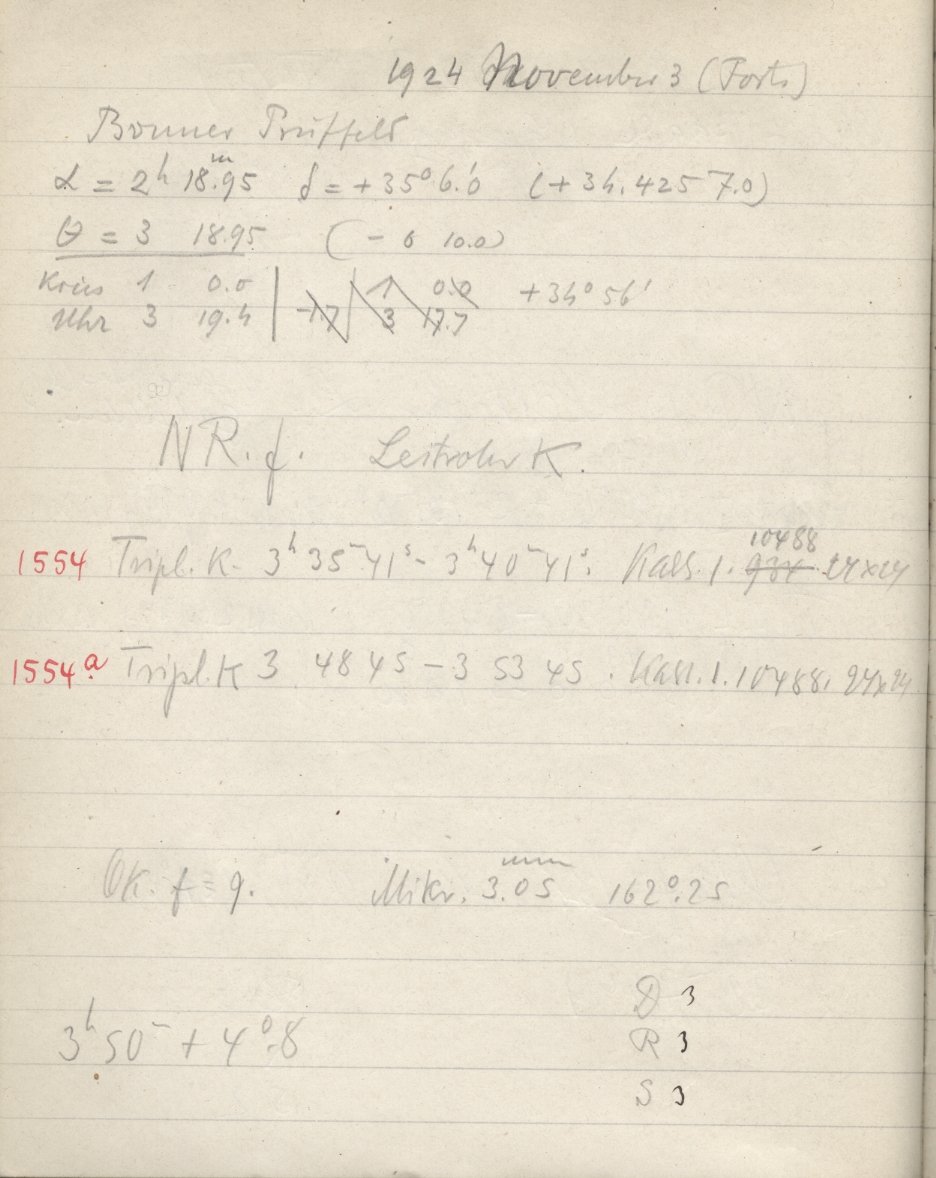 1924 November 3 (Forts)
Bonner Prüffeld
α = 2h 18m.95 δ = +35° 6.'0 (+34.425 7.0)
θ = 3 18.95 (- 6 10.0)
Kreis 1 0.0 1 0.0 +34° 56'
Uhr 3 19.4 -1.7 3 17.7
NR. f. Leitrohr K.
10488
1554 Tripl. K. 3h 35m 41s - 3h 40m 41s. Kass. 1. 24x24
1554a. Tripl. K 3 48 45 - 3 53 45. Kass. 1. 10488. 24x24
OK. f = 9. Mikr. 3.05 mm 162°.25
D 3
3h 50m + 4°.8 R 3
S 3